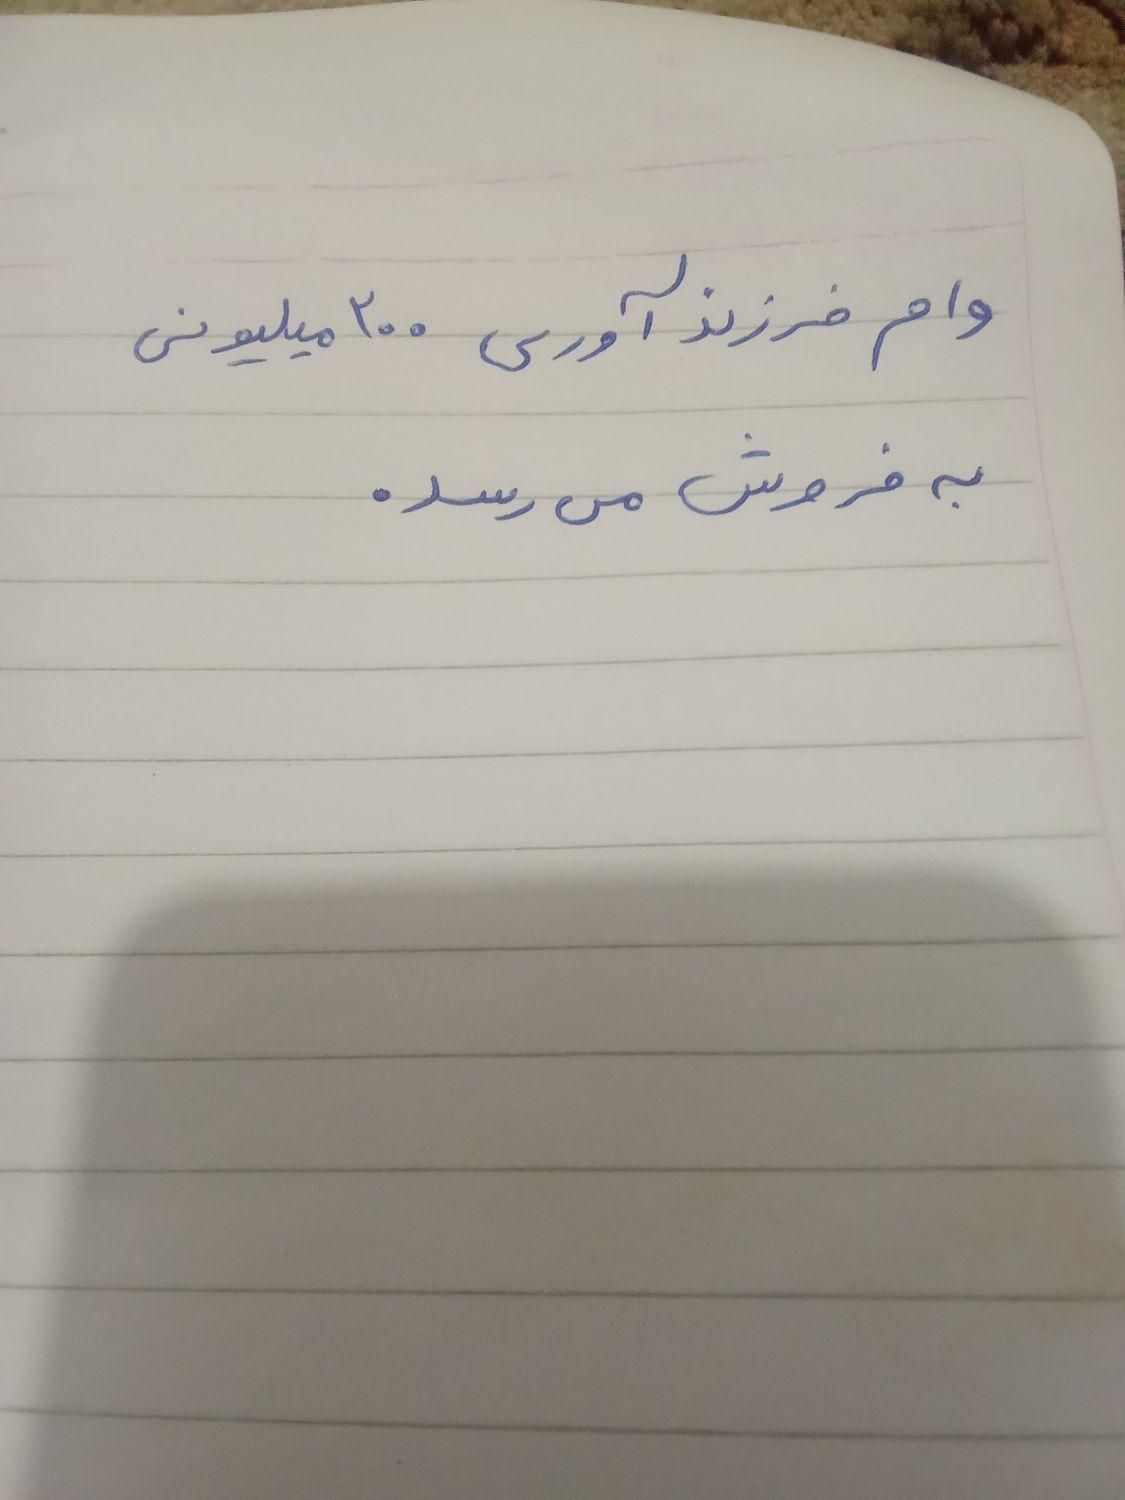 وام فرزندآوری ۲۰۰ میلیونی
به فروش می رسد.